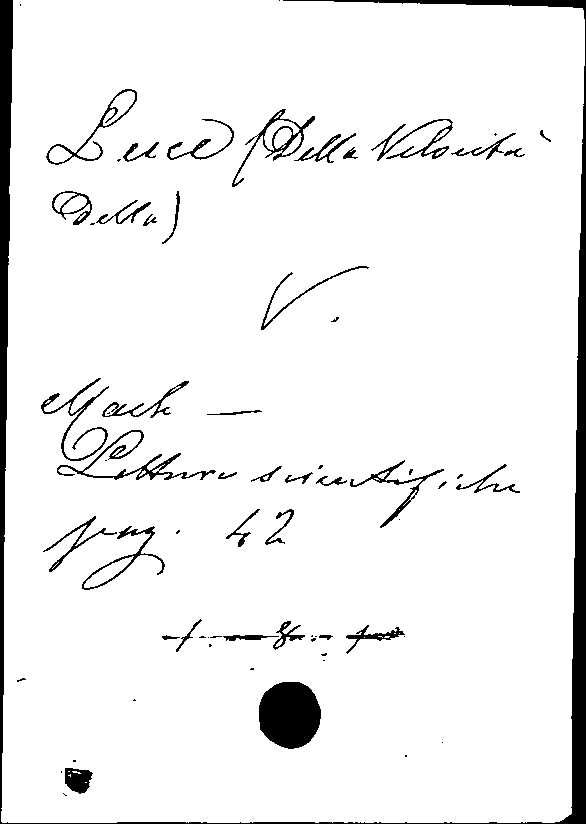 Luce (Della Velocità
Della)
V.
Mach —
Letture scientifiche
pag. 42